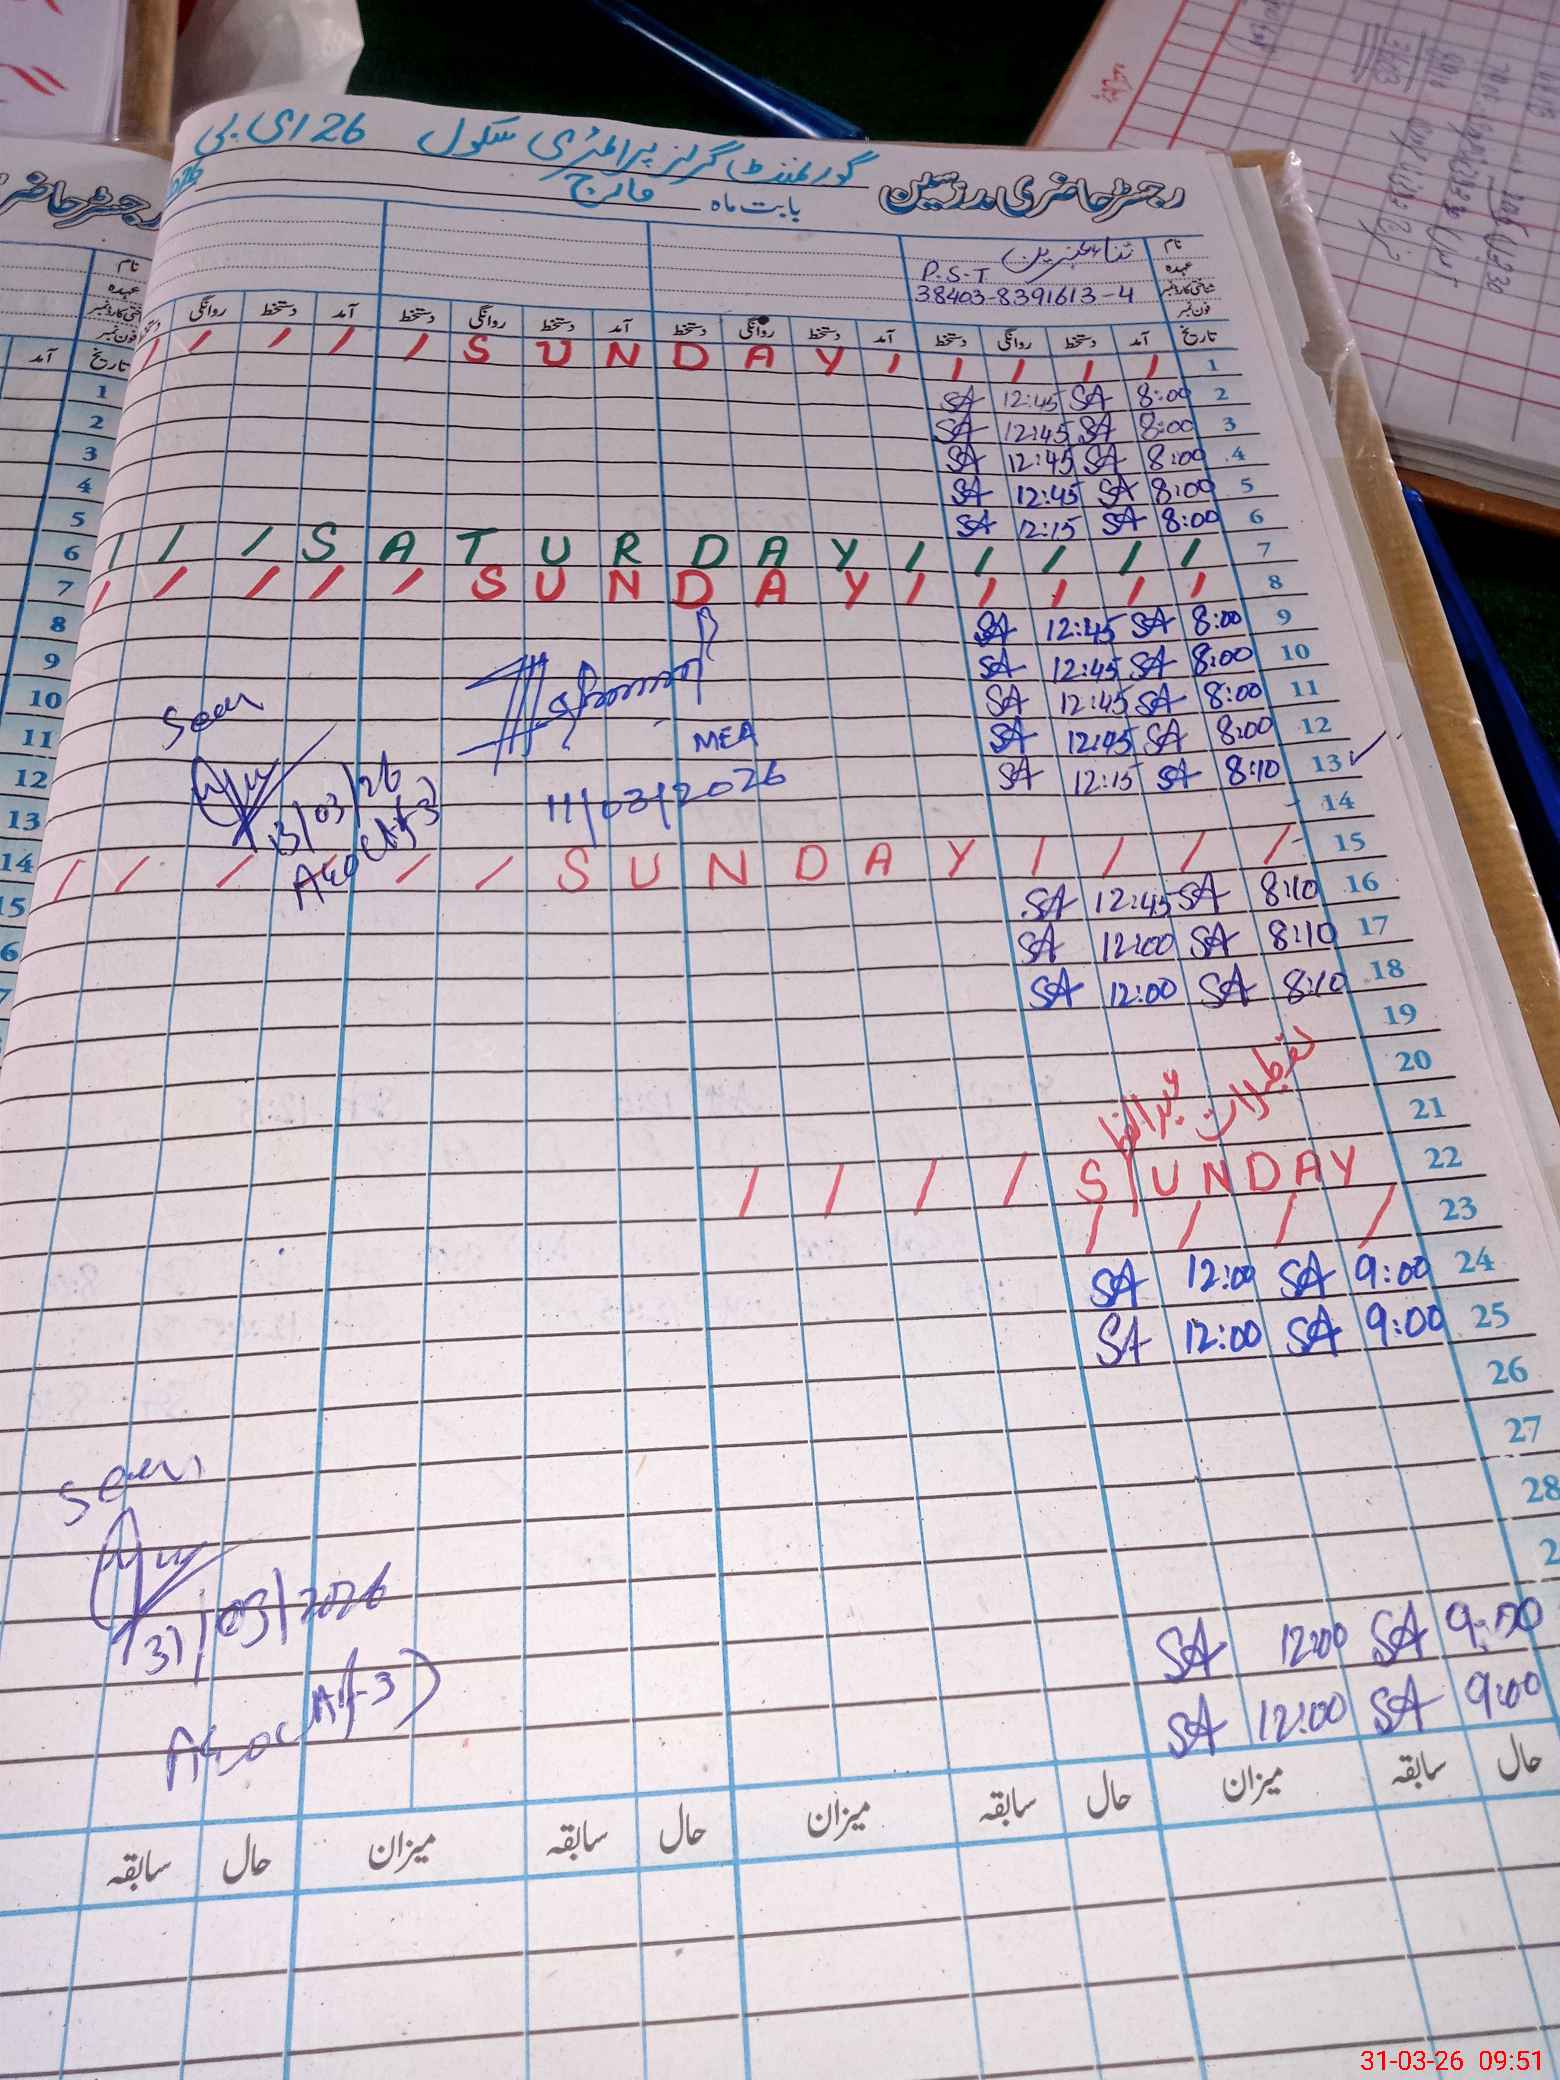 گورنمنٹ گرلز پرائمری سکول 126 ای بی
رجسٹر حاضری مدرسین
بابت ماہ مارچ
نام
عہدہ P.S.T
شناختی کارڈ نمبر 38403-8391613-4
فون نمبر
تاریخ آمد دستخط روانگی دستخط آمد دستخط روانگی دستخط آمد دستخط روانگی دستخط آمد دستخط روانگی
1 / / / / / S U N D A Y / / / / /
2 8:00 SA 12:45 SA
3 8:00 SA 12:45 SA
4 8:00 SA 12:45 SA
5 8:00 SA 12:45 SA
6 8:00 SA 12:15 SA
7 / / / S A T U R D A Y / / / / /
8 / / / / / S U N D A Y / / / / /
9 8:00 SA 12:45 SA
10 8:00 SA 12:45 SA
11 8:00 SA 12:45 SA
12 8:00 SA 12:45 SA
13 8:10 SA 12:15 SA
Seen
MEA
11/03/2026
13/03/26
14
15 / / / / / S U N D A Y / / / /
16 8:10 SA 12:45 SA
17 8:10 SA 12:00 SA
18 8:10 SA 12:00 SA
19
20
21
تعطیلات عیدالفطر
22 / / / / S U N D A Y
23 / / / /
24 9:00 SA 12:00 SA
25 9:00 SA 12:00 SA
26
27
28
2
9:00 SA 12:00 SA
9:00 SA 12:00 SA
Seen
31/03/2026
حال سابقہ میزان حال سابقہ میزان حال سابقہ میزان حال سابقہ
رجسٹر حاضر
نام
عہدہ
فون نمبر
تاریخ آمد
1
2
3
4
5
6
7
8
9
10
11
12
13
14
15
31-03-26 09:51